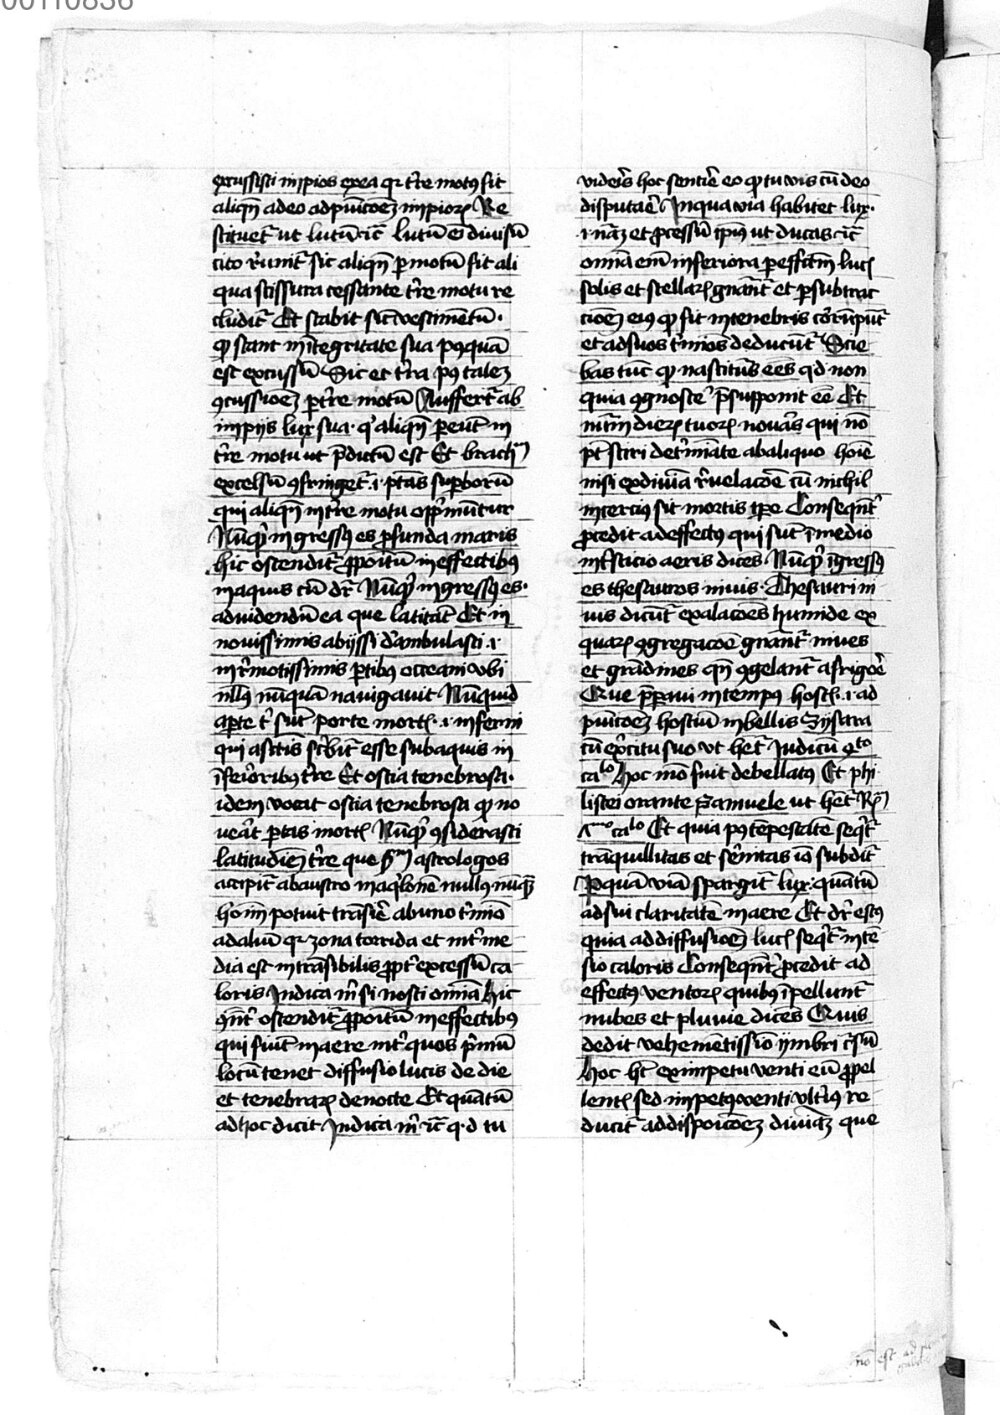 00110836
excussisti impios exea qr tr̄re motus fit
aliqn̄ adeo ad pūicōeȝ impioꝝ Re
stituet̄ ut lutū ic̄ lutū em̄ diuisū
cito r̄unit̄ sic aliqn̄ ꝑ motū fit ali
qua scissura cessante tr̄re motu re
cludit̄ Et stabit sicut vestimētū·
qꝫ stant in ītegritate sua pꝰquā
est excussū Sic et tr̄ra pꝰ taleȝ
ꝯcussiōeȝ ꝑ tr̄re motū Auffert̄ ab
impijs lux sua· qꝛ aliqn̄ ꝑeūt in
tr̄re motu ut p̄dictū est Et brachiū
excelsū ꝯfringet̄ ·i· ptās suꝑborū
qui aliqn̄ in tr̄re motu opprimūtur
Nūqͥd ingressus es ꝓfunda maris
hic ostendit̄ ꝓpoitū in effectibꝰ
in aquis cū dr̄ Nūqͥd ingressꝰ es·
ad videndū ea que latitāt Et in
nouissimis abyssi deambulasti ·i·
in r̄motissimis ꝑtibꝰ occeani vbi
nllꝰ nūquā nauigauit Nūnquid
aꝑte t̄ sūt porte mortꝭ ·i· inferni
qui a sctīs scͥbit̄ esse sub aquis in
īferioribꝰ tr̄re Et ostia tenebrosa·
idem vocat ostia tenebrosa qꝫ no
veāt portas mortꝭ Nūqͥd ꝯsiderasti
latitudīeȝ tr̄re que ẜm astrologos
accipit̄ ab austro in aqͥlonē nullꝰ nūqͣȝ
hoim potuit trāsire ab uno tͥmīo
ad aliū qꝛ zona torrida et int̄me
dia est intrāsibilis ꝓpt̄ excessū ca
loris Indica m̄ si nosti omīa Hic
ꝯn̄t̄ ostendit̄ ꝓpoitū in effectibꝰ
qui fiūt in aere int̄ quos pͥmū
locū tenet diffusio lucis de die
et tenebraꝝ de nocte Et quātū
ad hoc dicit Indica m̄ ic̄ q·d tu
videris hoc sentire eo qꝫ tu vis cū deo
disputare In qua via habitet lux·
·i· nāȝ et ꝓcessū ip̄iꝰ ut ducas ic̄
omīa em̄ inferiora ꝑ effcm̄ lucꝭ
solis et stellaꝝ gnānt̄ et ꝑ subtrac
tiōeȝ eiꝰ qꝫ fit in tenebris corrūpūt̄
et ad suos t̄mīos deducūt̄ Scie
bas tūc qꝫ nasciturꝰ eēs q·d non
quia ꝯgnoscē p̄supponit eē Et
nūm dieꝝ tuoꝝ nouās qui nō
pt̄ sciri det̄mīate ab aliquo hoīe
nisi ex diuīa r̄uelacōe cū nichil
incerciꝰ sit mortis tp̄e Conseqn̄t̄
ꝓcedit ad effectus qui sūt ī medio
int̄sticio aeris dicēs Nūqͥd īgressꝰ
es thesauros niuis· Thesauri ni
uis dicūt̄ exalacōes humide ex
quaꝝ ꝯgregacōe gnānt̄ niues
et grādines qn̄ ꝯgelant̄ a frigoē
Que p̄paui in tempꝰ hostꝭ ·i· ad
pūicōeȝ hostiū in bellis Sysara
cū exͬcitu suo vt het̄ Judicū qͣto
caͦ hoc mō fuit debellatꝰ Et phi
listei orante Samuele ut het̄ Rͫ
caͦ Et quia pꝰ tēpestatē seqt̄
trāquillitas et sͤnitas iō subdit̄
Ꝑ quā viā spargit̄ lux· quātū
ad sui claritatē in aere Et dr̄ estꝰ
quia ad diffusiōeȝ lucꝭ seqt̄ intē
sio caloris Conseqn̄t̄ ꝓcedit ad
effectꝰ ventoꝝ quibꝰ īpellunt̄
nubes et pluuie dicēs Quis
dedit vehemētissīo ymbri cͬsū
Hoc ht̄ ex impetu venti eū ꝓpel
lentꝭ sed impetꝰ venti vltͥiꝰ re
ducit̄ ad disposicōeȝ diuināȝ que
nō est ad